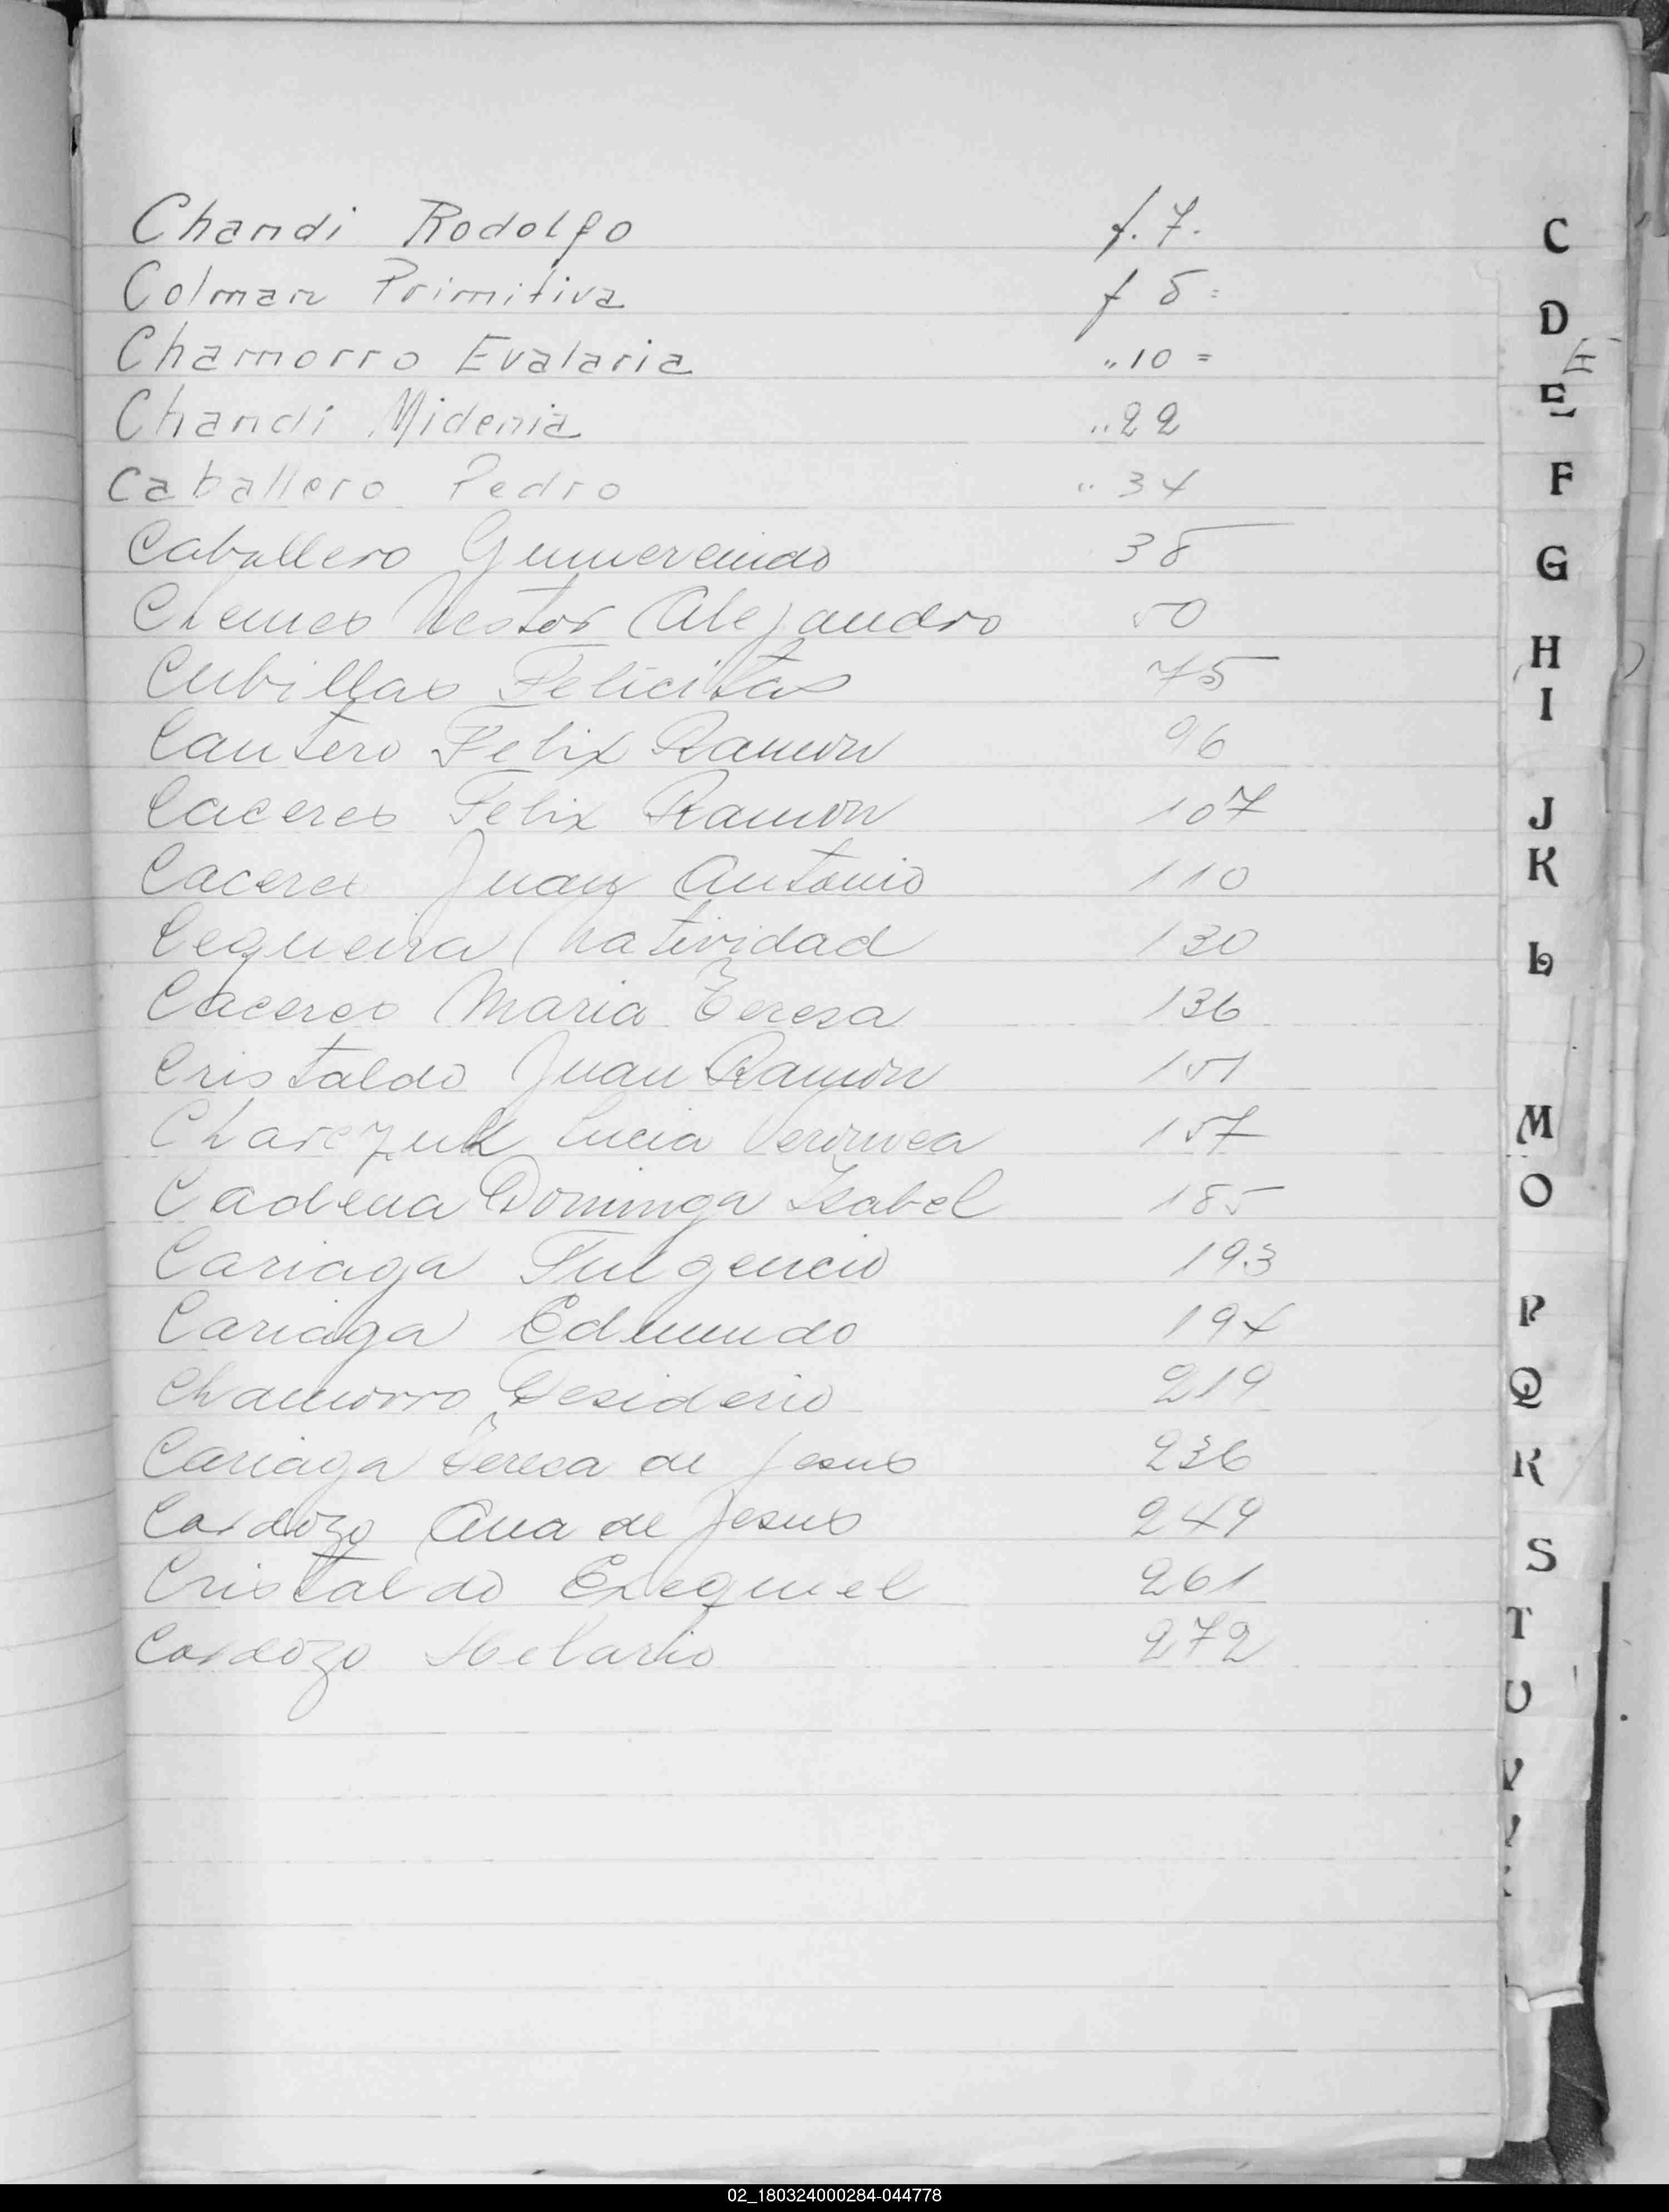 Chandi Rodolfo f. 7.
Colman Primitiva f 8 =
Chamorro Evalaria „ 10 =
Chandi Midenia „ 22
Caballero Pedro „ 34
Caballero Gumercindo 38
Clemes Nestor Alejandro 50
Cubillas Felicitas 75
Cantero Felix Ramon 96
Caceres Felix Ramon 107
Caceres Juan Antonio 110
Cequeira Natividad 130
Caceres Maria Teresa 136
Cristaldo Juan Ramon 151
Charczuk Lucia Veronica 157
Cadena Dominga Isabel 185
Cariaga Fulgencio 193
Cariaga Edmundo 194
Chamorro Desiderio 219
Cariaga Teresa de Jesus 236
Cardozo Ana de Jesus 249
Cristaldo Exequiel 261
Cardozo Helario 272
C
D
E
E
F
G
H
I
J
K
L
M
O
P
Q
R
S
T
U
V
02_180324000284-044778